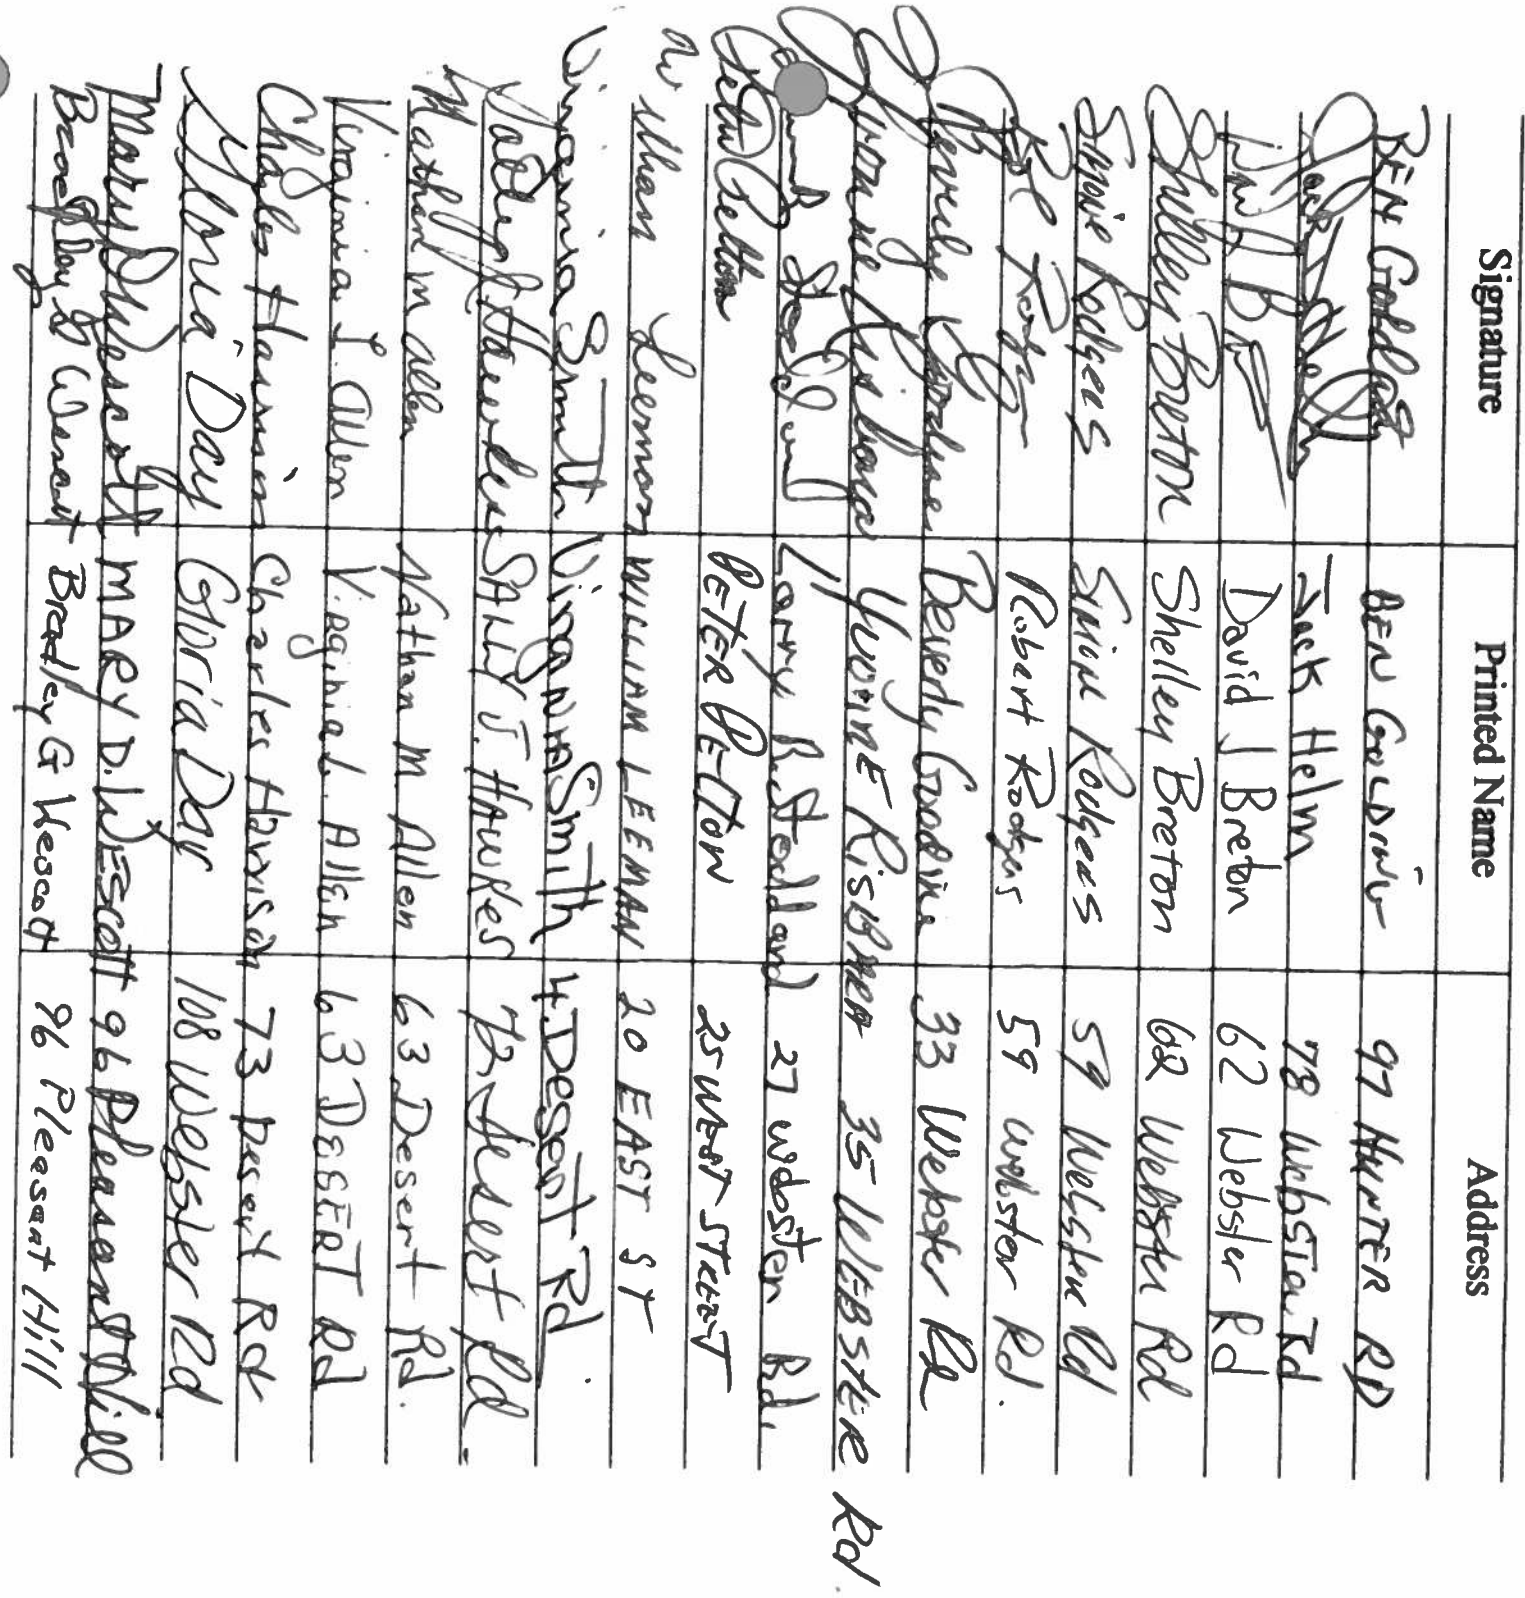 Signature Printed Name Address
BEN Golding BEN GOLDING 97 HUNTER RD
Jack Helm Jack Helm 78 Webster Rd
David J Breton 62 Webster Rd
Shelley Breton Shelley Breton 62 Webster Rd
Rodgers Rodgers 59 Webster Rd
Rodgers Robert Rodgers 59 Webster Rd.
Beverly Goodine Beverly Goodine 33 Webster Rd
Yvonne Risbara YVONNE RISBARA 35 WEBSTER Rd.
Larry R. Stoddard 27 Webster Rd.
Peter Pelton PETER PELTON 25 WEST STREET
William Leeman WILLIAM LEEMAN 20 EAST ST
Virginia Smith Virginia Smith 4 Desert Rd.
Sally J Hawkes SALLY J. HAWKES 72 Desert Rd.
Nathan M Allen Nathan M Allen 63 Desert Rd.
Virginia L. Allen Virginia L. Allen 63 DESERT Rd
Charles Harrison Charles Harrison 73 Desert Rd
Gloria Day Gloria Day 108 Webster Rd
Mary D Wescott MARY D. WESCOTT 96 Pleasant Hill
Bradley G Wescott Bradley G Wescott 96 Pleasant Hill